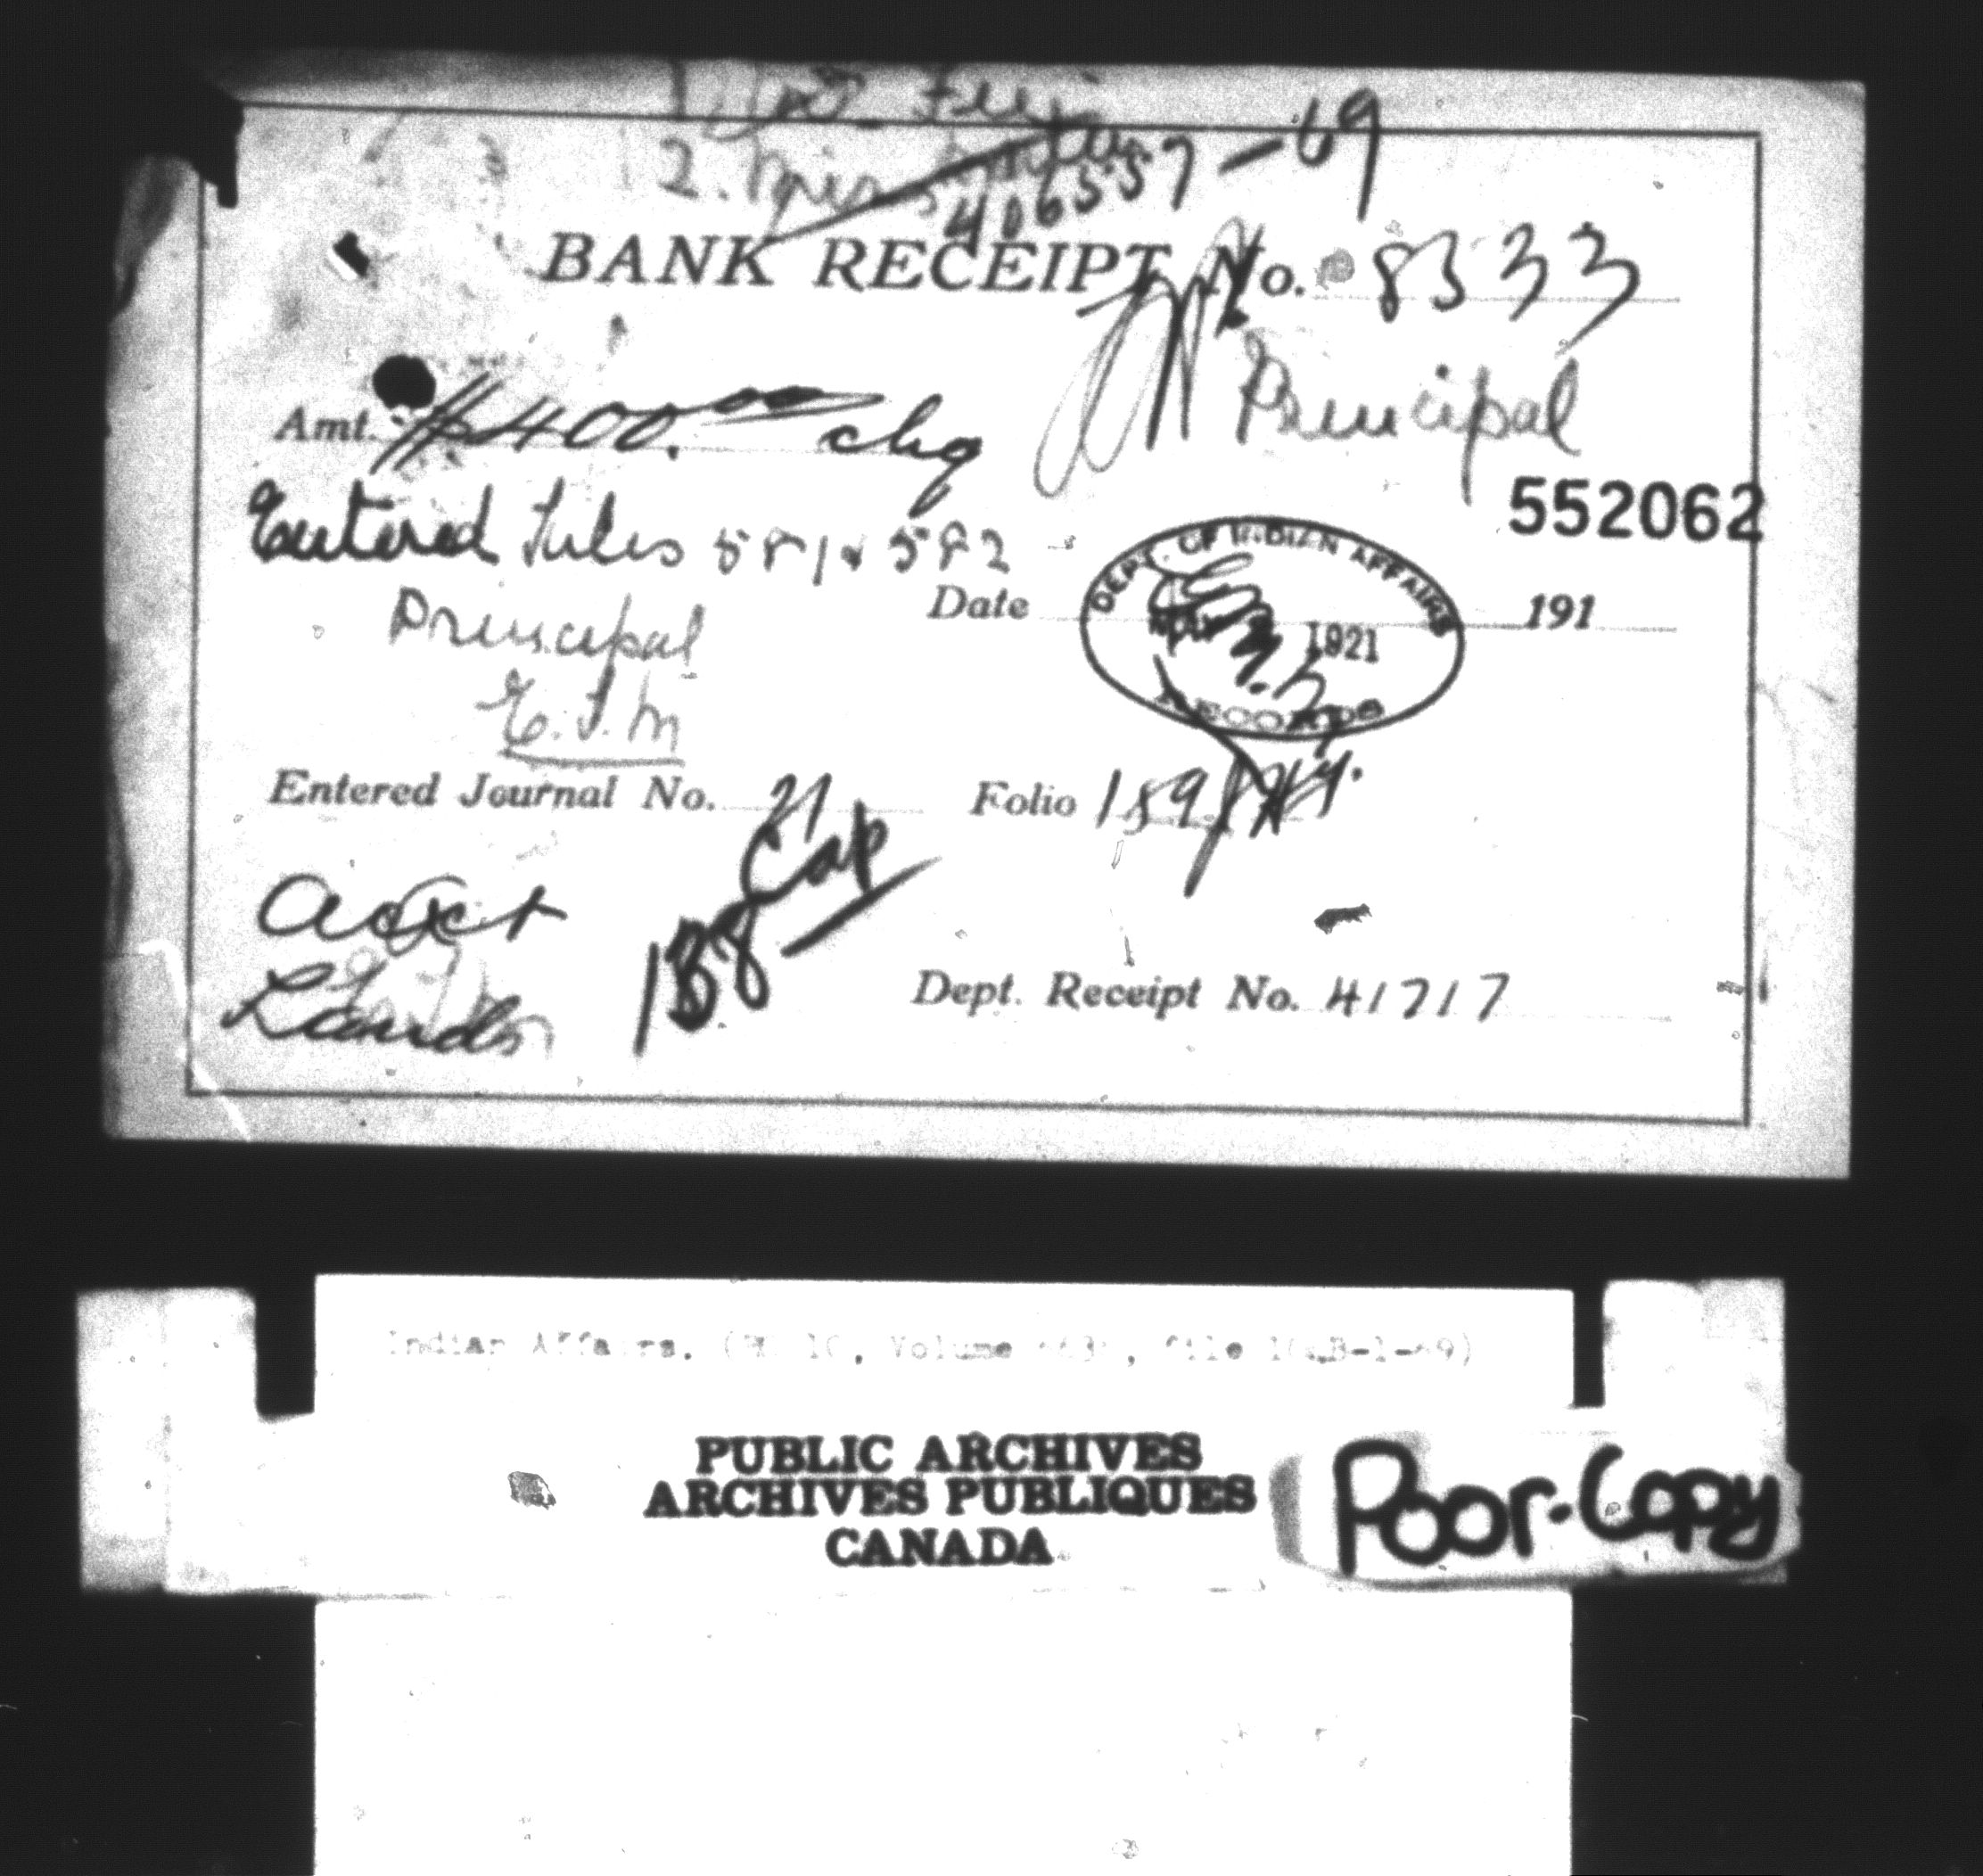 2. Miss
406557-69
BANK RECEIPT No. 8333
Principal
Amt. $400.00 chq
552062
Entered Sales 581 & 582
DEPT. OF INDIAN AFFAIRS
1921
RECORDS
Date 191
Principal
E.J.M
Entered Journal No. 21 Folio 159
Cap
188
Acct
Lands
Dept. Receipt No. 41717
Indian Affairs. (RG 10, Volume file
PUBLIC ARCHIVES
ARCHIVES PUBLIQUES
CANADA
Poor-Copy